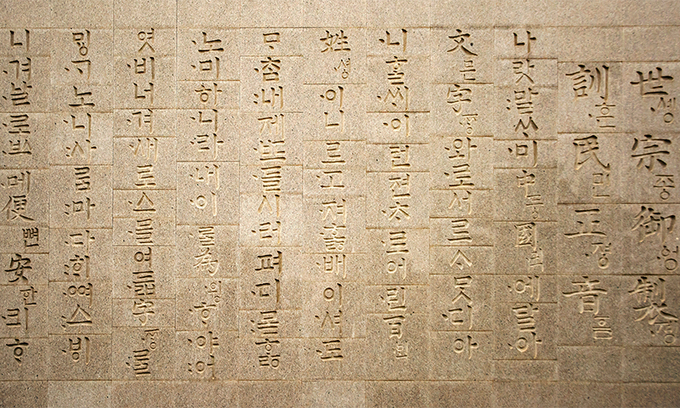 世솅宗종御엉製졩
訓훈民민正졍音ᅙᅳᆷ
나랏말ᄊᆞ미中듕國귁에달아
文문字ᄍᆞᆼ와로서르ᄉᆞᄆᆞᆺ디아
니ᄒᆞᆯᄊᆡ이런젼ᄎᆞ로어린百ᄇᆡᆨ
姓셩이니르고져호ᇙ배이셔도
ᄆᆞᄎᆞᆷ내제ᄠᅳ들시러펴디몯ᄒᆞᇙ
노미하니라내이ᄅᆞᆯ爲윙ᄒᆞ야어
엿비너겨새로스믈여듧字ᄍᆞᆼᄅᆞᆯ
ᄆᆡᇰᄀᆞ노니사ᄅᆞᆷ마다ᄒᆡᅇᅧ수ᄫᅵ
니겨날로ᄡᅮ메便뼌安ᅙᅡᆫ킈ᄒᆞ